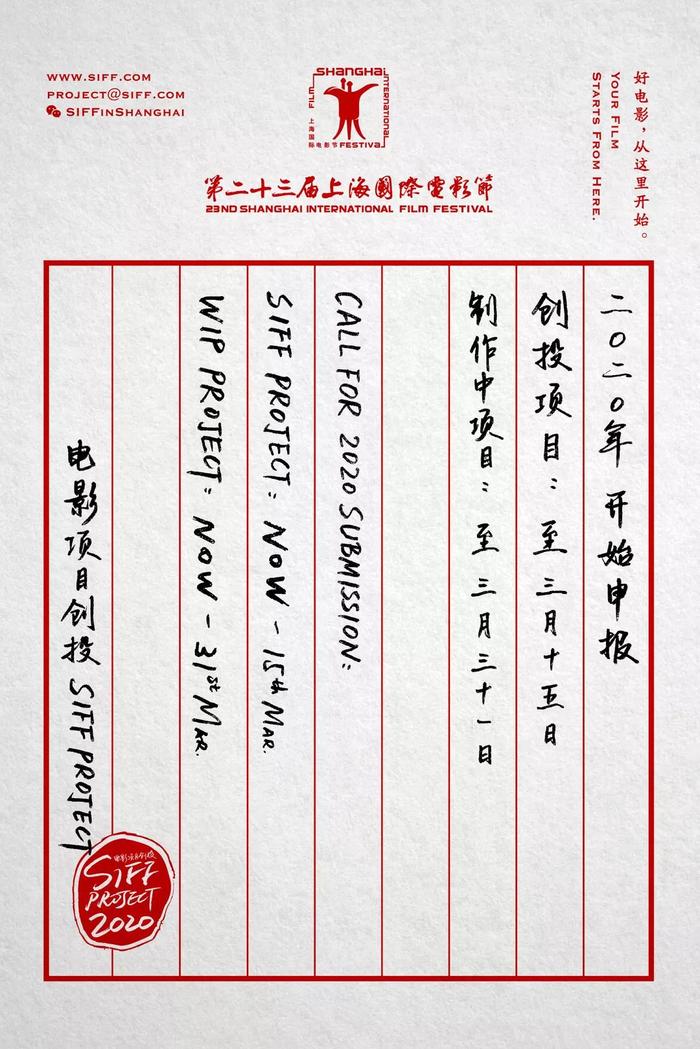 WWW.SIFF.COM
PROJECT@SIFF.COM
SIFFINSHANGHAI
SHANGHAI
INTERNATIONAL
FILM
上海国际电影节
FESTIVAL
好电影，从这里开始。
YOUR FILM
STARTS FROM HERE.
第二十三届上海國際電影節
23ND SHANGHAI INTERNATIONAL FILM FESTIVAL
二〇二〇年 开始申报
创投项目：至三月十五日
制作中项目：至三月三十一日
CALL FOR 2020 SUBMISSION:
SIFF PROJECT: NOW - 15th MAR.
WIP PROJECT: NOW - 31st MAR.
电影项目创投 SIFF PROJECT
电影项目创投
SIFF
PROJECT
2020